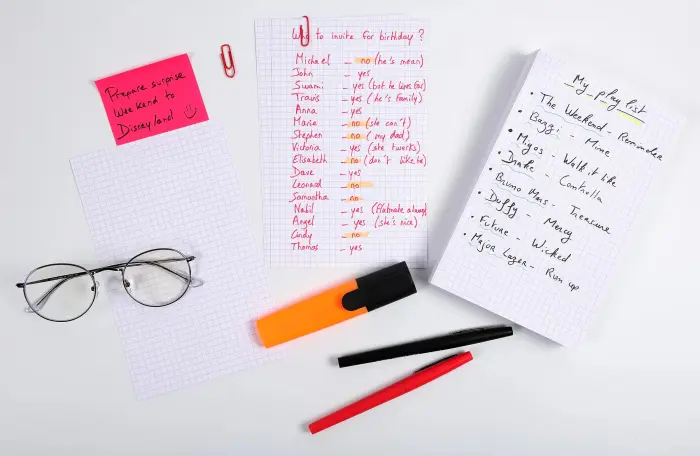 Prepare surprise
Weekend to
Disneyland :)
Who to invite for birthday ?
Michael - no (he's mean)
John - yes
Swami - yes (but he lives far)
Travis - yes (he's family)
Anna - yes
Maria - no (she can't)
Stephen - no (my dad)
Victoria - yes (she twerks)
Elisabeth - no (don't like he)
Dave - yes
Leonard - no
Samantha - no
Nabil - yes (flatmate always)
Angel - yes (she's nice)
Cindy - no
Thomas - yes
My play list
• The Weekend - Reminder
• Baggi - Mine
• Migos - Walk it like
• Drake - Controlla
• Bruno Mars - Treasure
• Duffy - Mercy
• Future - Wicked
• Major Lazer - Run up